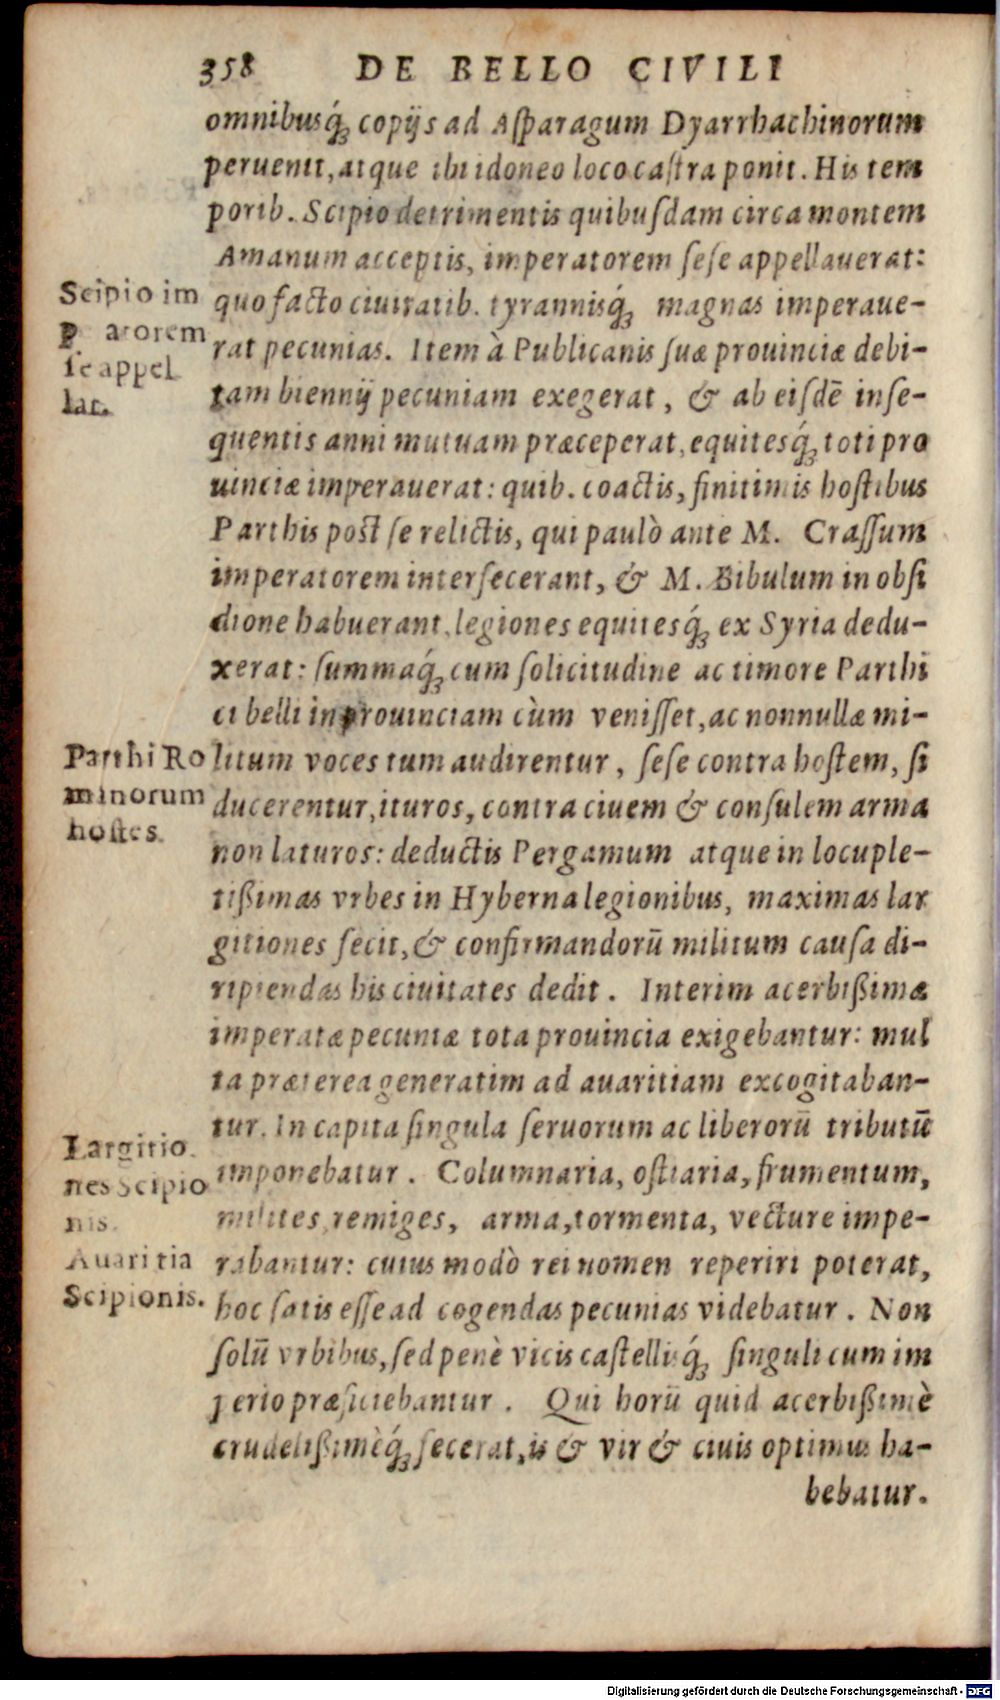 358 DE BELLO CIVILI
omnibusq́ꝫ copijs ad Asparagum Dyarrhachinorum
peruenit, atque ibi idoneo loco castra ponit. His tem
porib. Scipio detrimentis quibusdam circa montem
Amanum acceptis, imperatorem sese appellauerat:
quo facto ciuitatib. tyrannisq́ꝫ magnas imperaue-
rat pecunias. Item à Publicanis suæ prouinciæ debi-
tam biennij pecuniam exegerat, & ab eisdē inse-
quentis anni mutuam præceperat, equitesq́ꝫ toti pro
uinciæ imperauerat: quib. coactis, finitimis hostibus
Parthis post se relictis, qui paulò ante M. Crassum
imperatorem interfecerant, & M. Bibulum in obsi
dione habuerant, legiones equitesq́ꝫ ex Syria dedu-
xerat: summaq́ꝫ cum solicitudine ac timore Parthi
ci belli in prouinciam cùm venisset, ac nonnullæ mi-
litum voces tum audirentur, sese contra hostem, si
ducerentur, ituros, contra ciuem & consulem arma
non laturos: deductis Pergamum atque in locuple-
tißimas vrbes in Hyberna legionibus, maximas lar
gitiones fecit, & confirmandorū militum causa di-
ripiendas his ciuitates dedit. Interim acerbißimæ
imperatæ pecuniæ tota prouincia exigebantur: mul
ta præterea generatim ad auaritiam excogitaban-
tur. In capita singula seruorum ac liberorū tributū
imponebatur. Columnaria, ostiaria, frumentum,
milites, remiges, arma, tormenta, vecture impe-
rabantur: cuius modò rei nomen reperiri poterat,
hoc satis esse ad cogendas pecunias videbatur. Non
solū vrbibus, sed penè vicis castellisq́ꝫ singuli cum im
perio præficiebantur. Qui horū quid acerbißimè
crudelißimèq́ꝫ fecerat, is & vir & ciuis optimus ha-
bebatur.
Scipio im
p atorem
se appel
lat.
Parthi Ro
manorum
hostes.
Largitio
nes Scipio
nis.
Auaritia
Scipionis.
Digitalisierung gefördert durch die Deutsche Forschungsgemeinschaft - DFG